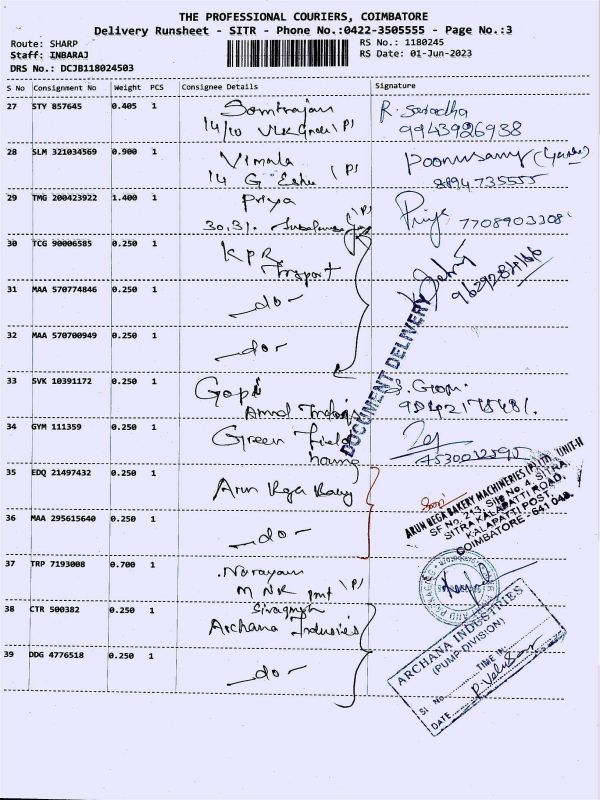 THE PROFESSIONAL COURIERS, COIMBATORE
Delivery Runsheet - SITR - Phone No.:0422-3505555 - Page No.:3
Route: SHARP
RS No.: 1180245
Staff: INBARAJ
RS Date: 01-Jun-2023
DRS No.: DCJB118024503
S No Consignment No Weight PCS Consignee Details Signature
27 STY 857645 0.405 1
R. Saradha
9943926938
28 SLM 321034569 0.900 1 Vimala
14 G
8894735555
29 TMG 200423922 1.400 1 Priya
Priya 7708903308
30 TCG 90006585 0.250 1 KPR
31 MAA 570774846 0.250 1 - do -
32 MAA 570700949 0.250 1 - do -
DOCUMENT DELIVERY
33 SVK 10391172 0.250 1 Gopi
S. Gopi
34 GYM 111359 0.250 1 Green Field
7530012595
35 EDQ 21497432 0.250 1 Arun Rega
ARUN REGA BAKERY MACHINERIES (P) LTD, UNIT-II
SF No. 2/3, Site No. 4, SITRA,
SITRA KALAPATTI ROAD,
KALAPATTI POST,
COIMBATORE - 641 048.
36 MAA 295615640 0.250 1 - do -
37 TRP 7193008 0.700 1 Narayan
MNR
38 CTR 500382 0.250 1
Archana Industries
39 DDG 4776518 0.250 1 - do -
ARCHANA INDUSTRIES
(PUMP DIVISION)
Sl No. TIME IN
DATE